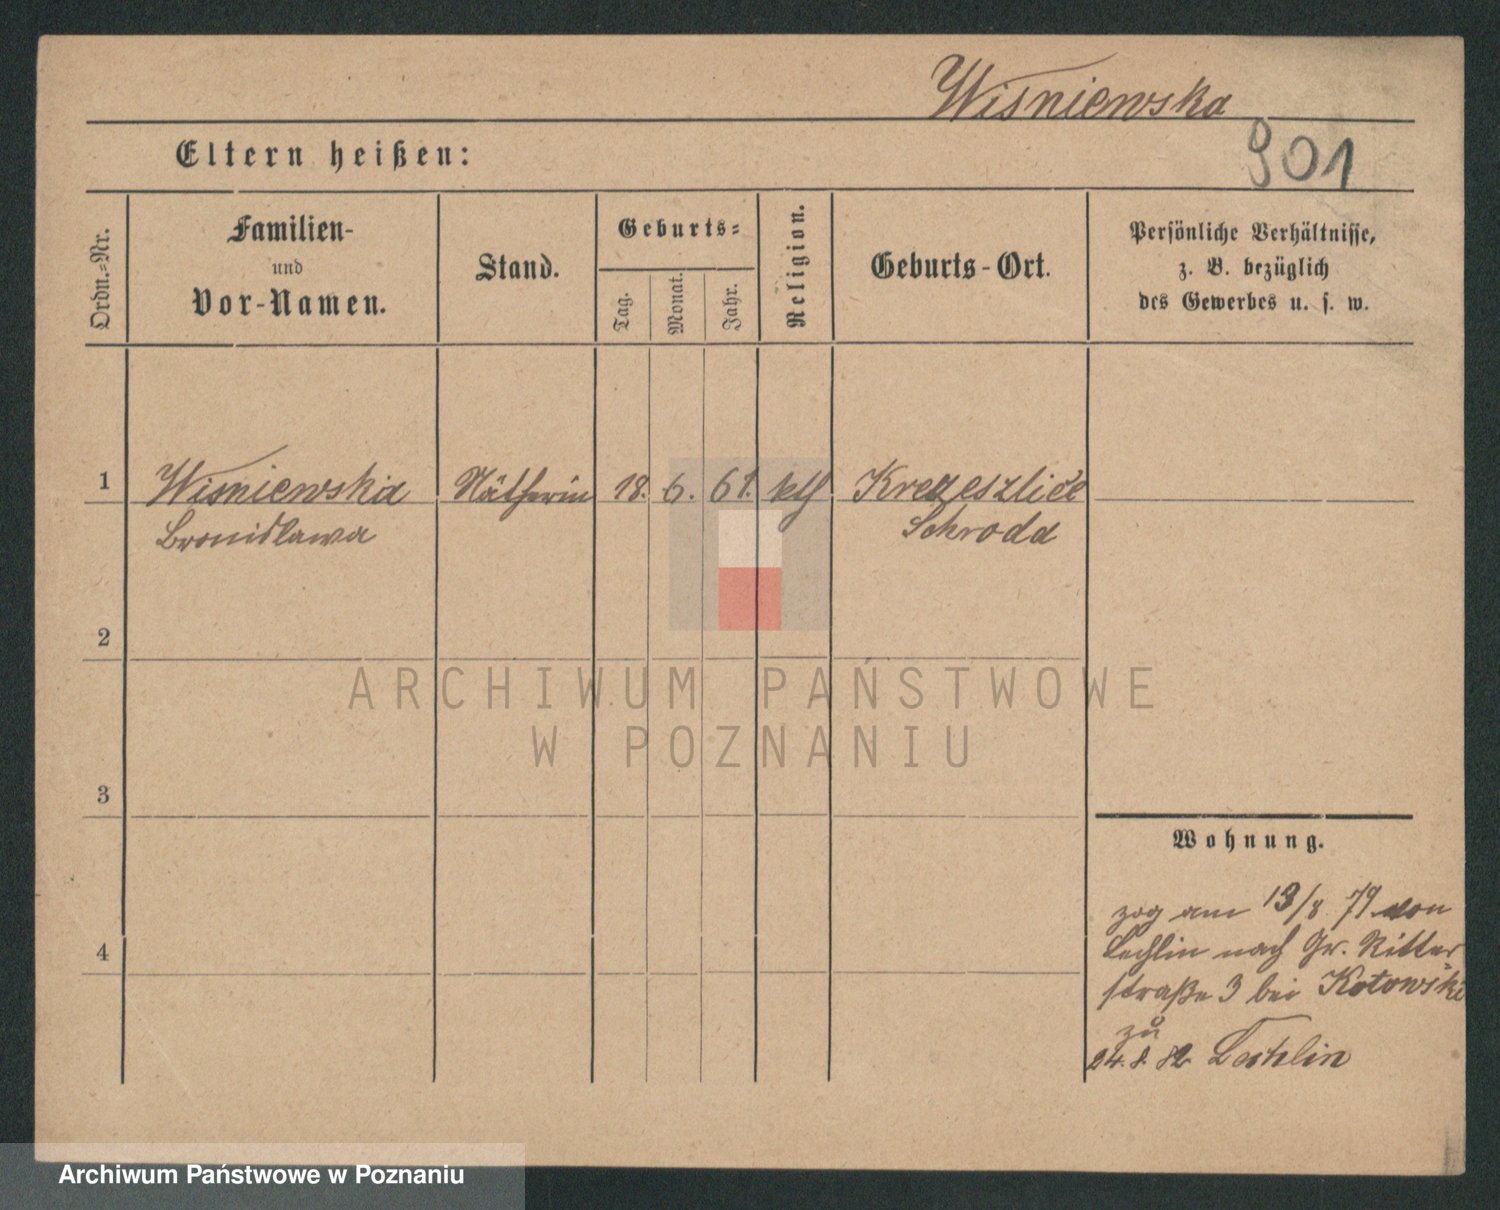 Wiśniewska
901
Eltern heißen:
Ordn.=Nr.
Familien-
und
Vor-Namen.
Stand.
Geburts=
Tag.
Monat.
Jahr.
Religion.
Geburts-Ort.
Persönliche Verhältnisse,
z. B. bezüglich
des Gewerbes u. s. w.
1 Wiśniewska Nätherin 18. 6. 61. kth
Bronislawa Schroda
2
ARCHIWUM PAŃSTWOWE
W POZNANIU
3
Wohnung.
zog am 13/8 79 von
4 Lechlin nach Gr. Ritter
straße 3 bei Kotowski
zu
24. 8. 82 Lechlin
Archiwum Państwowe w Poznaniu